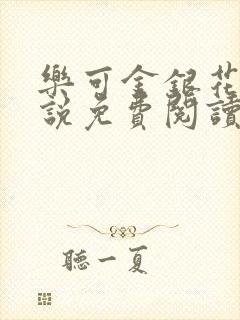 樂可金銀花
說免費閱讀
聽一夏